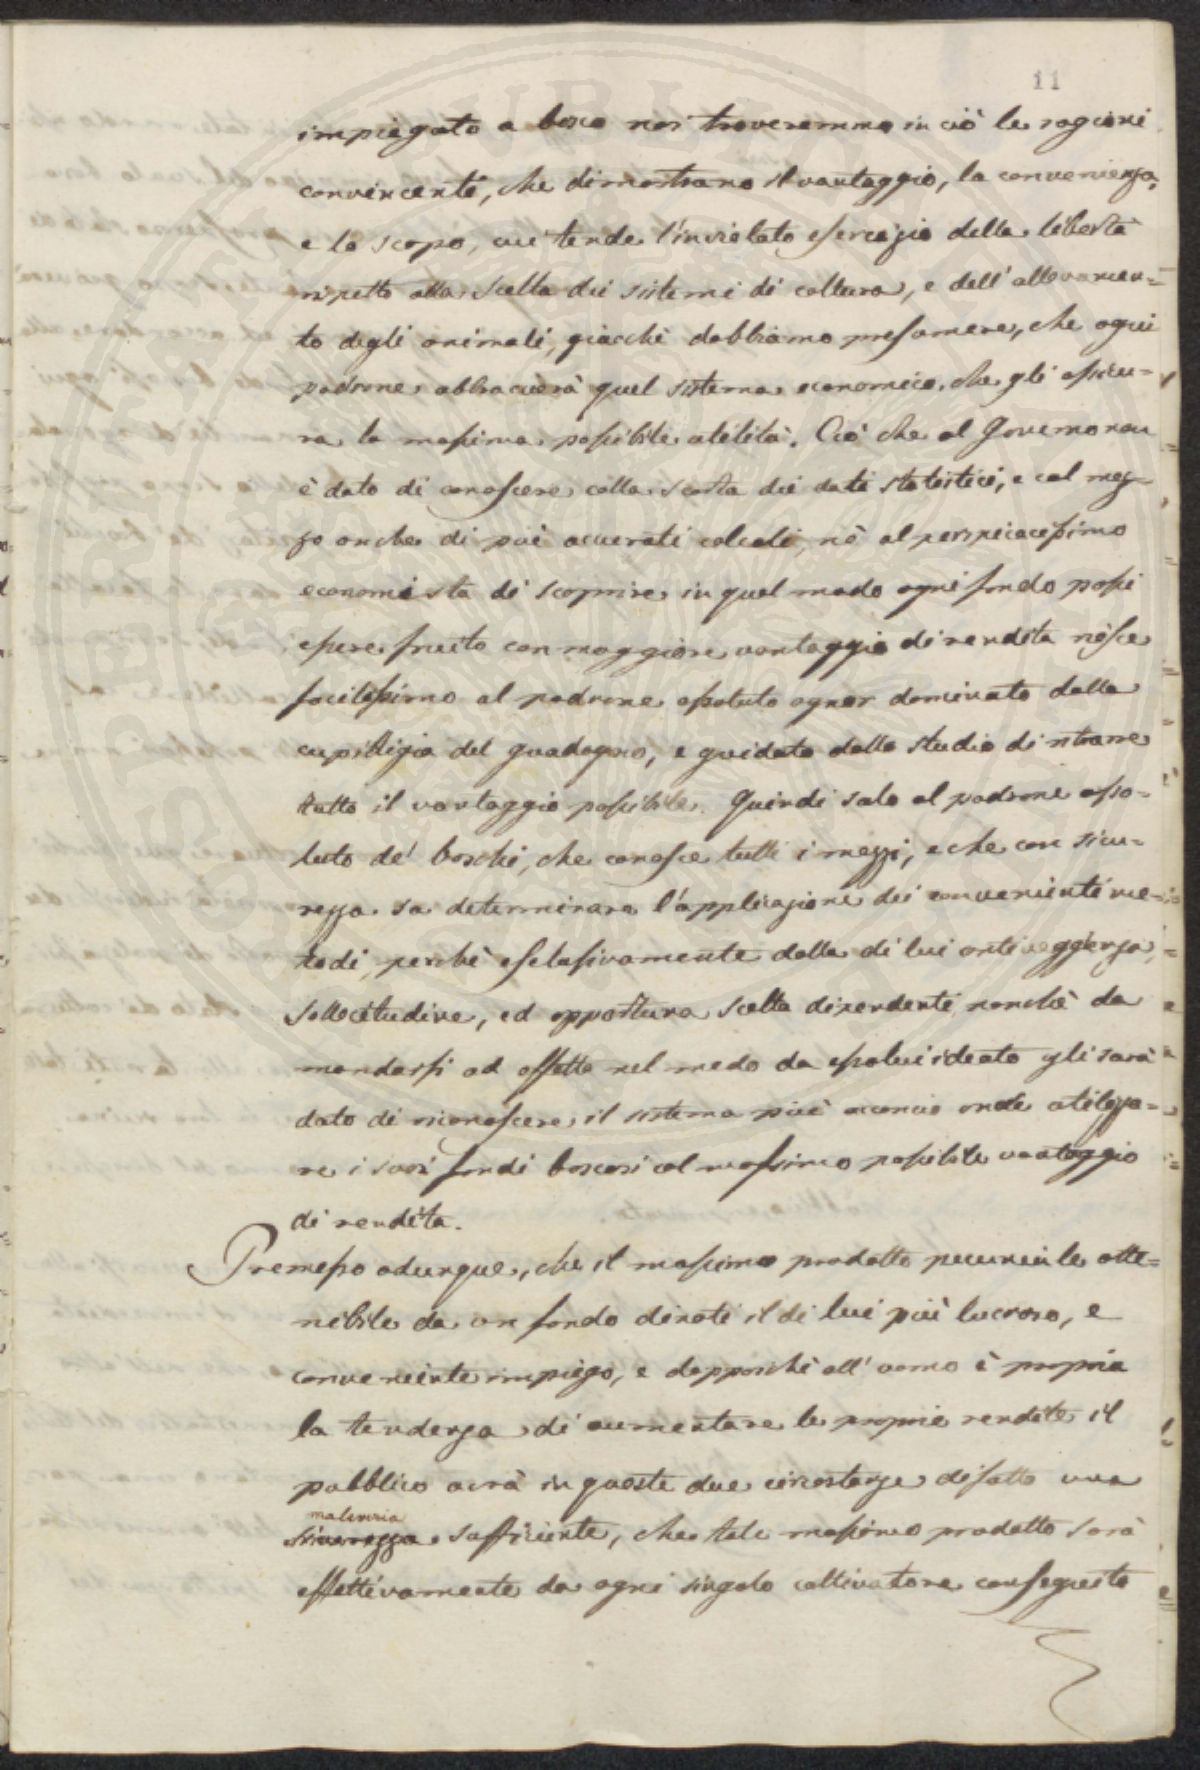 11
impiegato a bosco noi troveremmo in ciò le ragioni
convincenti, che dimostrano il vantaggio, la convenienza,
e lo scopo, cui tende l'inviolato esercizio della libertà
rispetto alla scelta dei sistemi di coltura, e dell'allevamen-
to degli animali, giacchè dobbiamo presumere, che ogni
padrone abbraccierà quel sistema economico, che gli assicu-
ra la massima possibile utilità. Ciò che al Governo non
è dato di conoscere colla scorta dei dati statistici, e col mez-
zo anche di più accurati calcoli, nè al perspicacissimo
economista di scoprire in qual modo ogni fondo possi
essere fruito con maggiore vantaggio di rendita riesce
facilissimo al padrone assoluto ognor dominato dalla
cupidigia del guadagno, e guidato dallo studio di ritrarre
tutto il vantaggio possibile. Quindi solo al padrone asso-
luto de' boschi, che conosce tutti i mezzi, e che con sicu-
rezza sa determinare l'applicazione dei convenienti me-
todi, perchè esclusivamente dalla di lui antiveggenza,
sollecitudine, ed opportuna scelta dipendenti, nonchè da
mandarsi ad effetto nel modo da esso lui ideato gli sarà
dato di riconoscere il sistema più acconcio onde utilizza-
re i suoi fondi boscosi col massimo possibile vantaggio
di rendita.
Premesso adunque, che il massimo prodotto pecuniale otte-
nibile da un fondo dinoti il di lui più lucroso, e
conveniente impiego, e dapposchè all'uomo è propria
la tendenza di aumentare le proprie rendite il
pubblico avrà in queste due circostanze difatto una
malleveria
sicurezza sufficiente, che tale massimo prodotto sarà
effettivamente da ogni singolo coltivatore conseguito